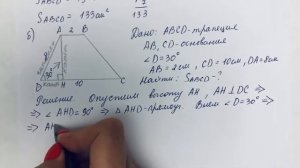 S ABCD = 133 см²
133
б)
A 2 B
8
30°
D H 10 C
Дано: ABCD-трапеция
AB, CD-основания
∠D=30°
AB=2см, CD=10см, DA=8см
Найти: S ABCD-?
Решение. Опустим высоту AH, AH⊥DC ⇒
⇒ ∠AHD=90° ⇒ △AHD-прямоуг. ∠D=30° ⇒
⇒ AH